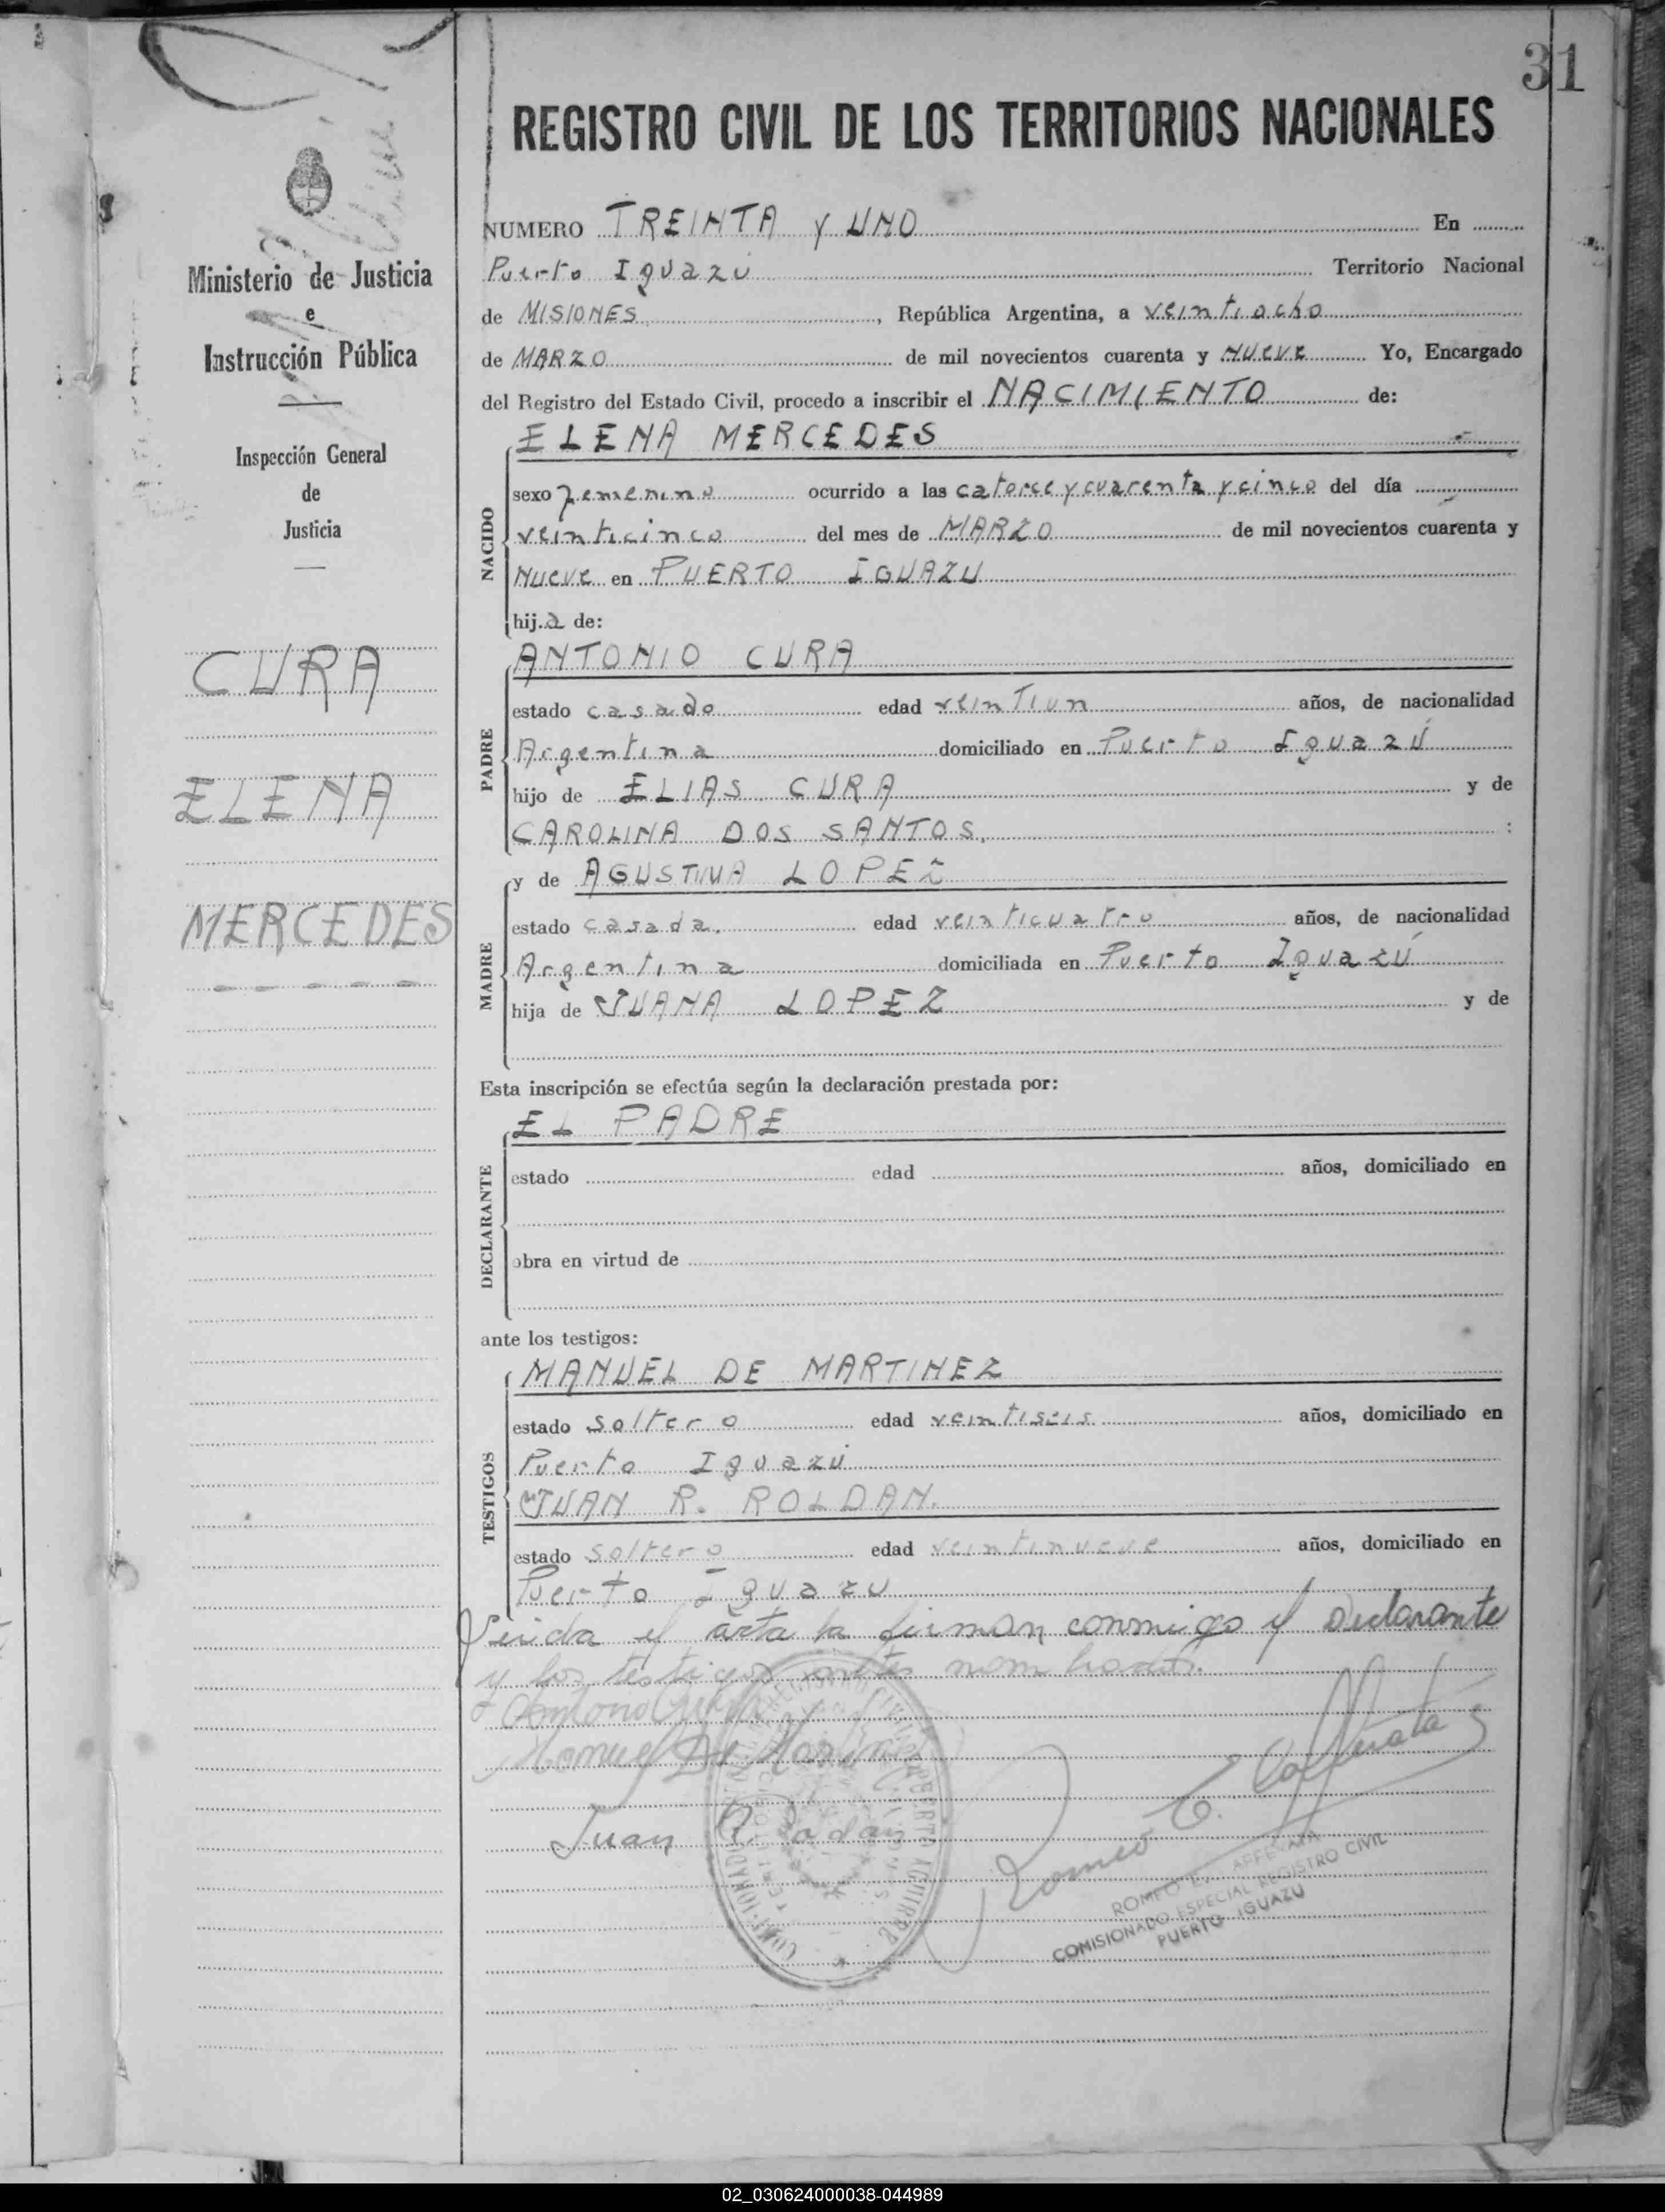 31
REGISTRO CIVIL DE LOS TERRITORIOS NACIONALES
Ministerio de Justicia
e
Instrucción Pública
Inspección General
de
Justicia
CURA
ELENA
MERCEDES
NUMERO TREINTA Y UNO En
Puerto Iguazú Territorio Nacional
de MISIONES, República Argentina, a veintiocho
de MARZO de mil novecientos cuarenta y NUEVE Yo, Encargado
del Registro del Estado Civil, procedo a inscribir el NACIMIENTO de:
NACIDO
ELENA MERCEDES
sexo femenino ocurrido a las catorce y cuarenta y cinco del día
veinticinco del mes de MARZO de mil novecientos cuarenta y
Nueve en PUERTO IGUAZU
hij.a de:
PADRE
ANTONIO CURA
estado casado edad veintiun años, de nacionalidad
Argentina domiciliado en Puerto Iguazú
hijo de ELIAS CURA y de
CAROLINA DOS SANTOS. :
MADRE
y de AGUSTINA LOPEZ
estado casada. edad veinticuatro años, de nacionalidad
Argentina domiciliada en Puerto Iguazú
hija de JUANA LOPEZ y de
Esta inscripción se efectúa según la declaración prestada por:
DECLARANTE
EL PADRE
estado edad años, domiciliado en
obra en virtud de
ante los testigos:
TESTIGOS
MANUEL DE MARTINEZ
estado soltero edad veintiseis años, domiciliado en
Puerto Iguazú
JUAN R. ROLDAN.
estado soltero edad veintinueve años, domiciliado en
Puerto Iguazu
Leida el acta la firman conmigo el Declarante
y los testigos antes nombrados.
Antonio Cura
Manuel De Martinez
Juan R. Roldan
Romeo E.
ROMEO E.
COMISIONADO ESPECIAL REGISTRO CIVIL
PUERTO IGUAZU
PUERTO AGUIRRE
02_030624000038-044989